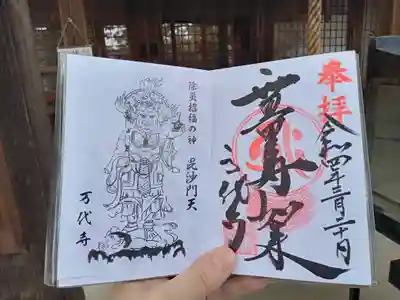 奉拝
令和四年三月二十日
万代寺
除災招福の神 毘沙門天
万代寺